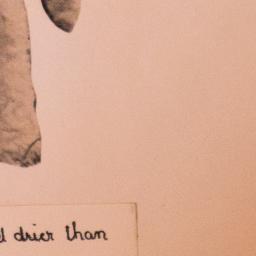 drier than